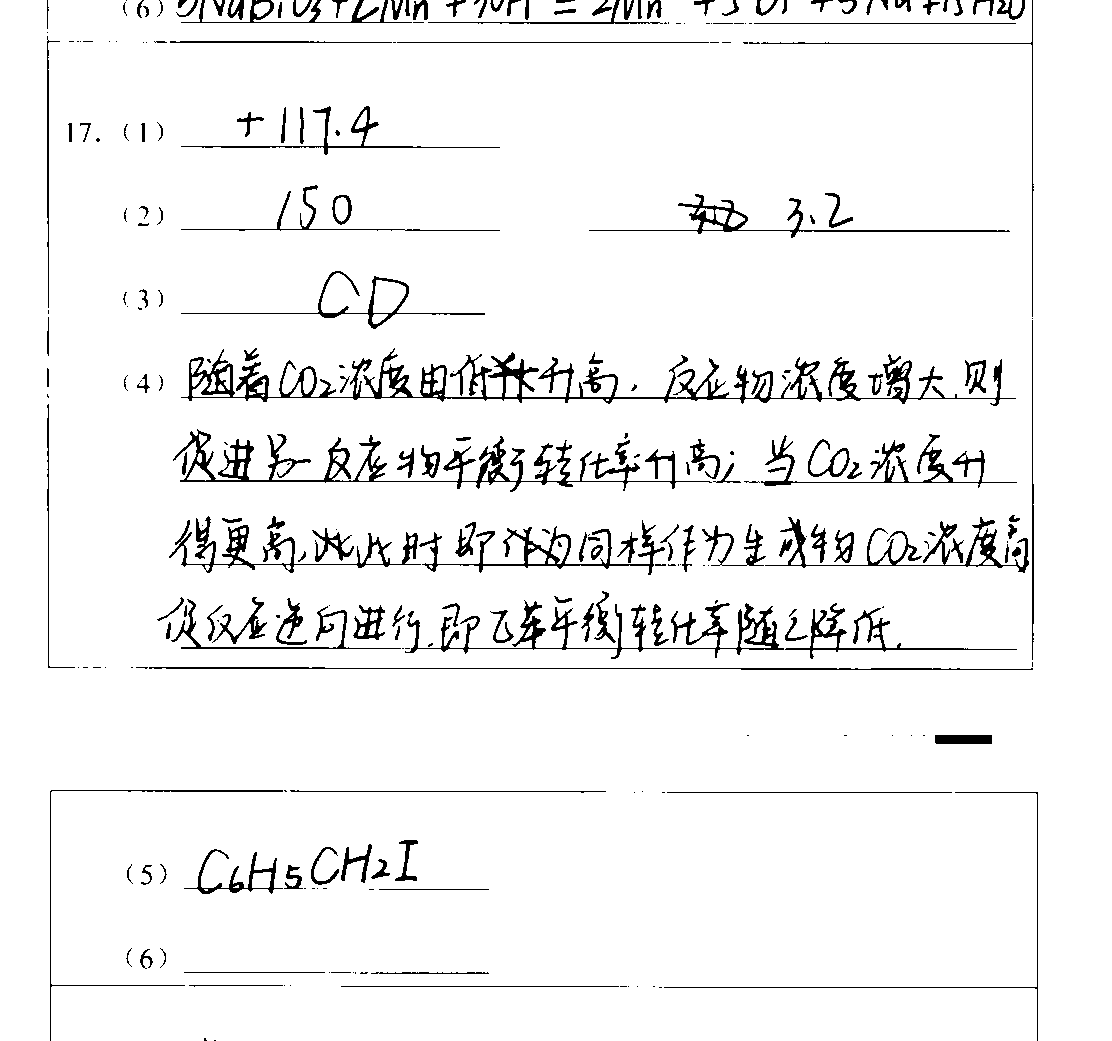 (6) 5NaBiO3+2Mn +14H = 2Mn +5Bi +5Na +7H2O
17. (1) +117.4
(2) 150 3.2
(3) CD
(4) 随着CO2浓度由低升高,反应物浓度增大,则
促进另一反应物平衡转化率升高;当CO2浓度升
得更高,此时即同样作为生成物CO2浓度高
促反应逆向进行,即乙苯平衡转化率随之降低.
(5) C6H5CH2I
(6)